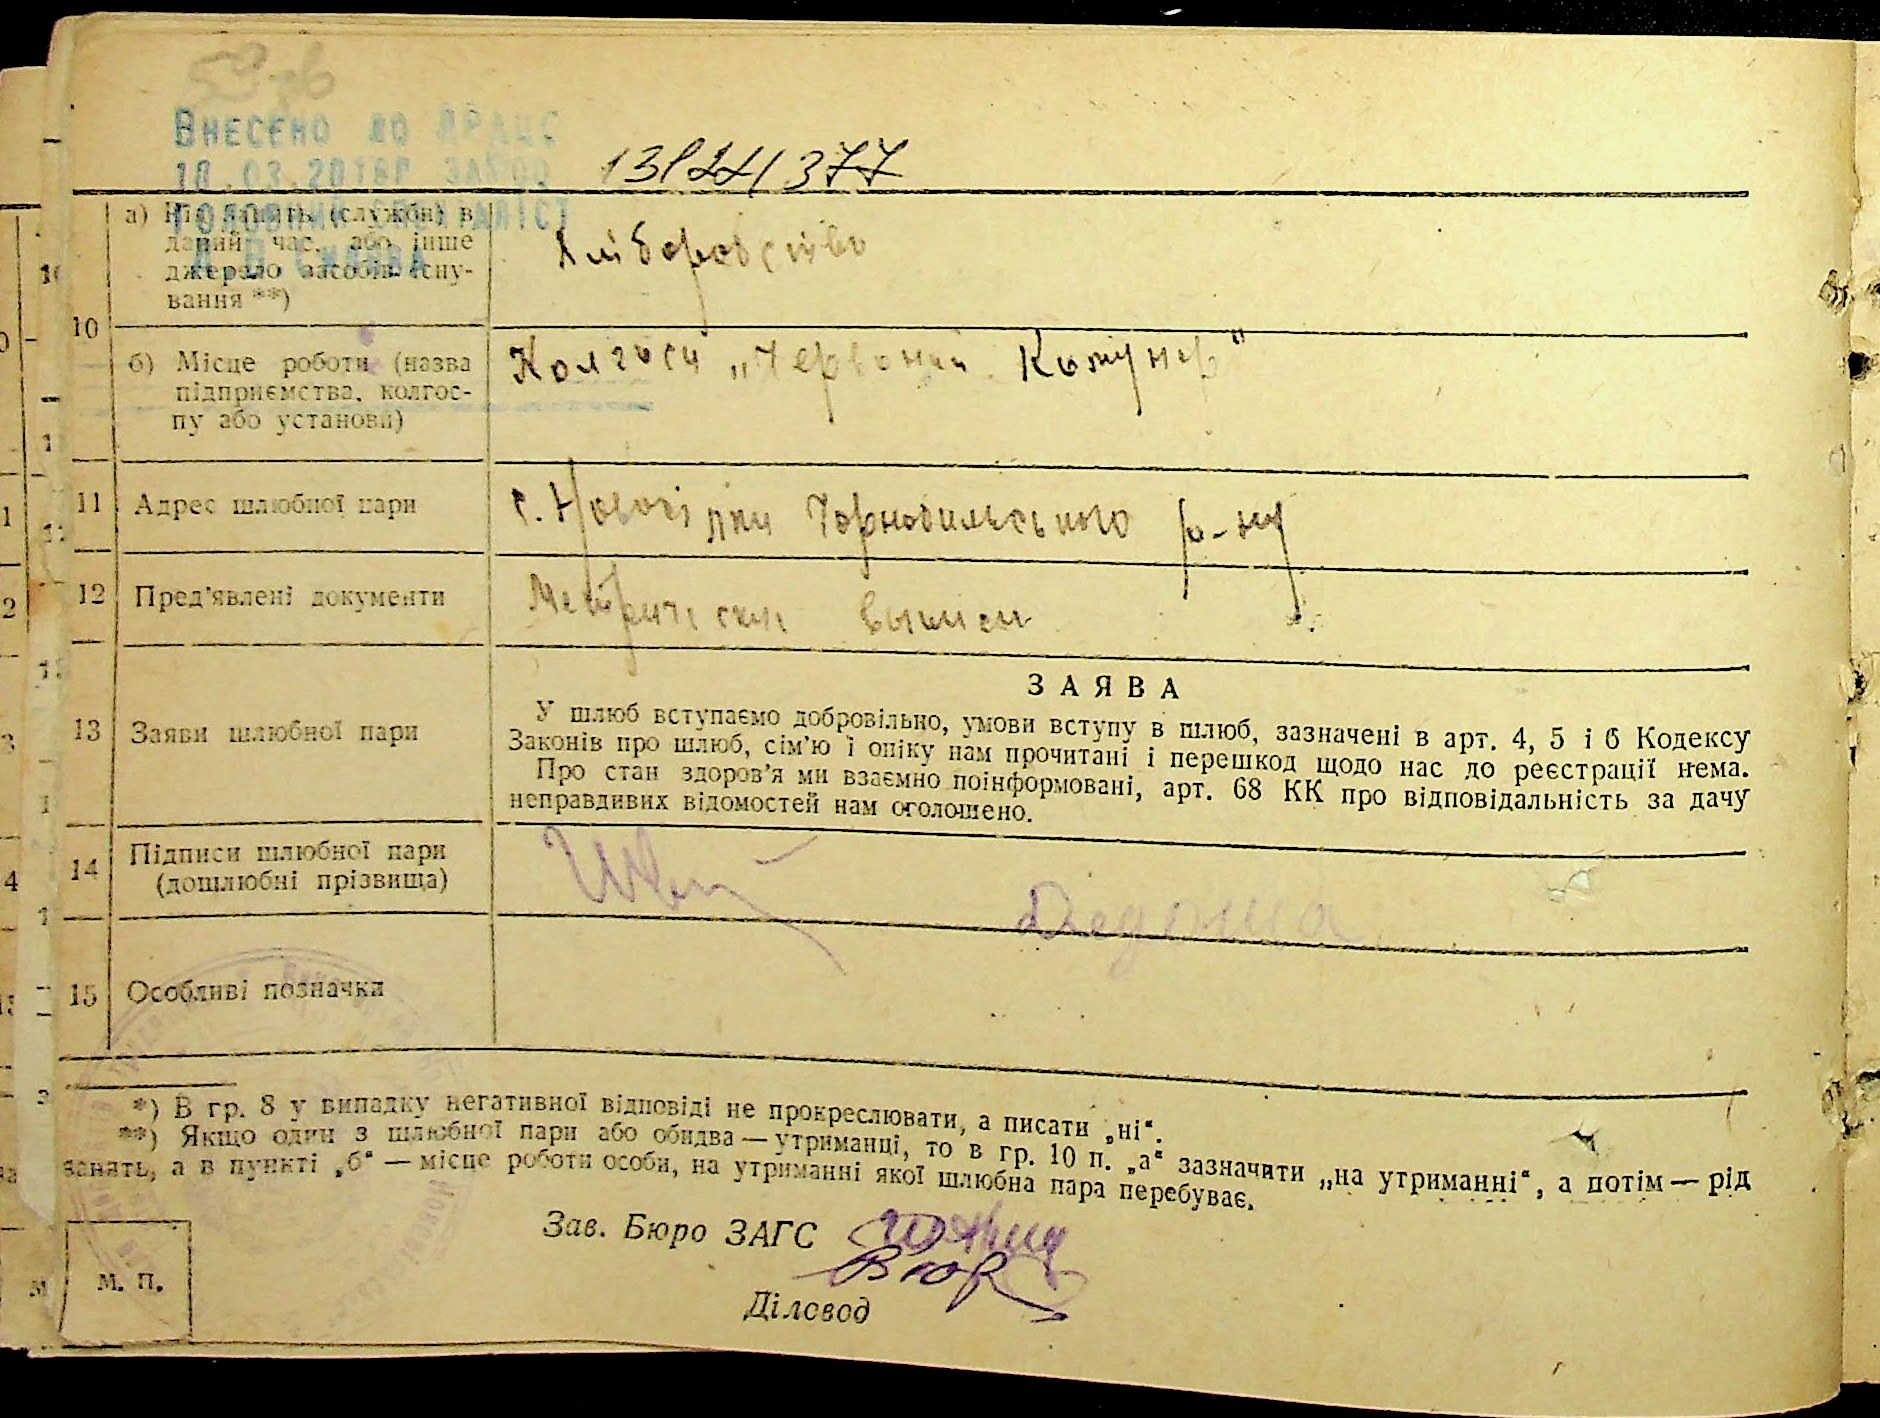 Внесено до ДРАЦС
18.03.2018Р
Головний спеціаліст
а) Рід занять (служби) в
даний час, або інше
джерело засобів існу-
вання **)
Хліборобство
10
б) Місце роботи (назва
підприємства, колгос-
пу або установи)
Колгосп „Червоний Комунар"
11 Адрес шлюбної пари
с. Новосілки Чорнобильського р-ну
12 Пред'явлені документи
Метрически выписи
ЗАЯВА
13 Заяви шлюбної пари
У шлюб вступаємо добровільно, умови вступу в шлюб, зазначені в арт. 4, 5 і 6 Кодексу
Законів про шлюб, сім'ю і опіку нам прочитані і перешкод щодо нас до реєстрації нема.
Про стан здоров'я ми взаємно поінформовані, арт. 68 КК про відповідальність за дачу
неправдивих відомостей нам оголошено.
14 Підписи шлюбної пари
(дошлюбні прізвища)
15 Особливі позначки
*) В гр. 8 у випадку негативної відповіді не прокреслювати, а писати „ні“.
**) Якщо один з шлюбної пари або обидва — утриманці, то в гр. 10 п. „а“ зазначити „на утриманні“, а потім — рід
занять, а в пункті „б“ — місце роботи особи, на утриманні якої шлюбна пара перебуває.
Зав. Бюро ЗАГС
М. П.
Діловод